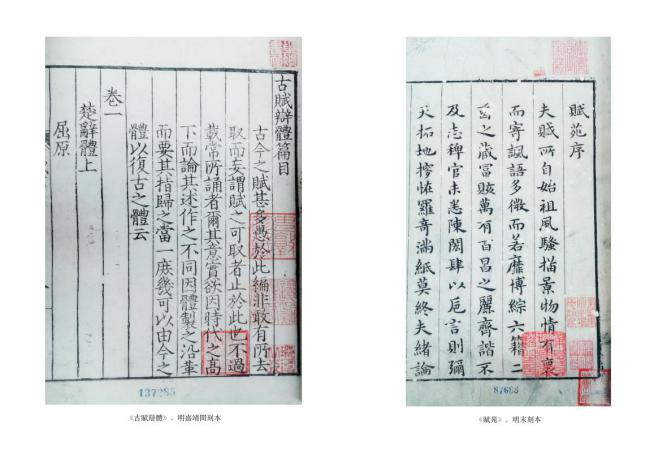 古賦辯體篇目
古今之賦甚多愚於此編非敢有所去
取而妄謂賦之可取者止於此也不過
載常所誦者爾其意實欲因時代之高
下而論其述作之不同因體製之沿革
而要其指歸之當一庶幾可以由今之
體以復古之體云
卷一
楚辭體上
屈原
137285
《古賦辯體》，明嘉靖間刻本
賦苑序
夫賦所自始祖風騷描景物情有裏
而寄諷語多微而若靡博綜六籍二
之藏冨賅萬有百昌之麗齊諧不
及志稗官未悉陳閎肆以巵言則彌
天拓地恠羅奇滿紙莫終夫緒論
《賦苑》，明末刻本